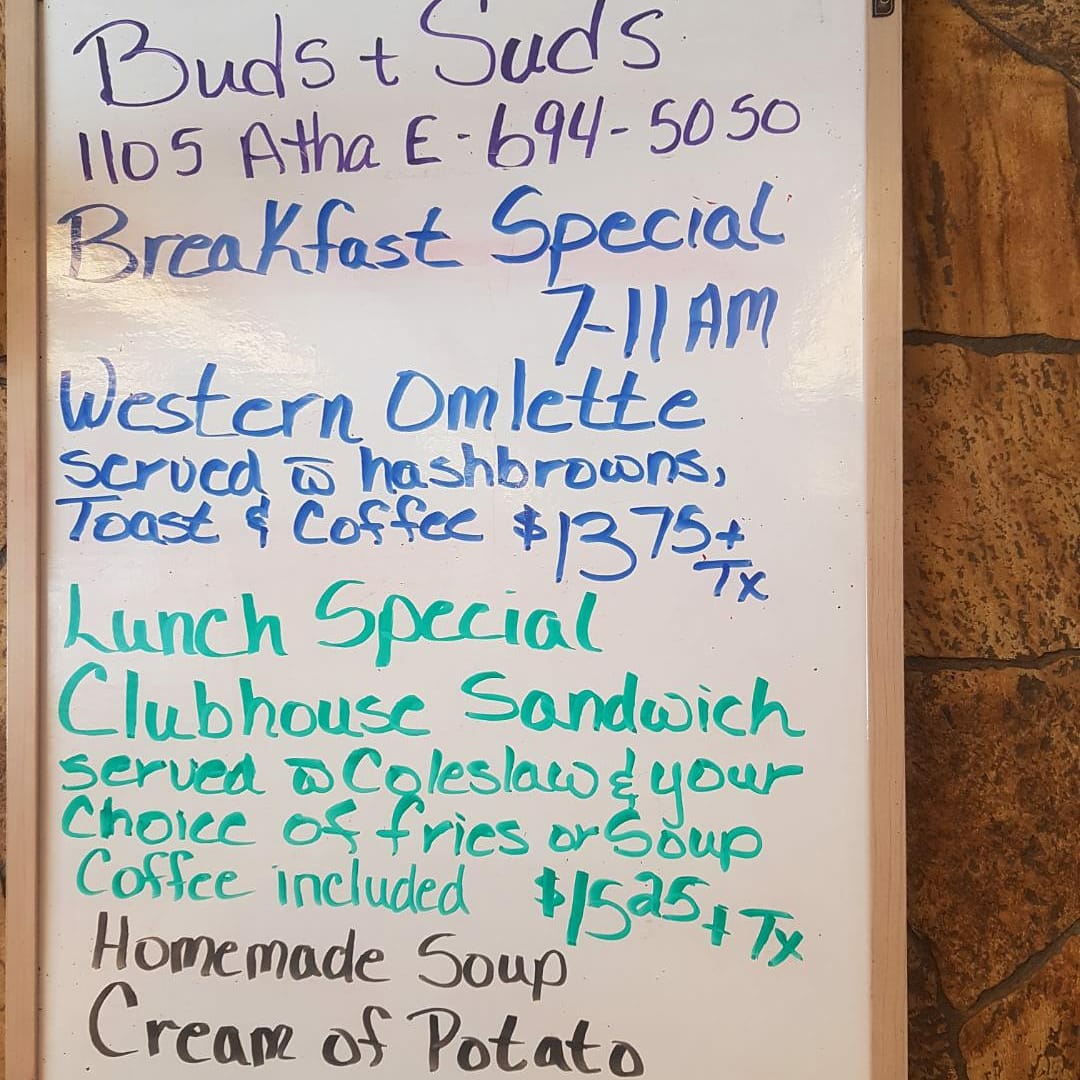 Buds + Suds
1105 Atha E - 694-5050
Breakfast Special
7-11 AM
Western Omlette
served w hashbrowns,
Toast & Coffee $13 75 +
Tx
Lunch Special
Clubhouse Sandwich
served w Coleslaw & your
Choice of fries or Soup
Coffee included $15 25 + Tx
Homemade Soup
Cream of Potato